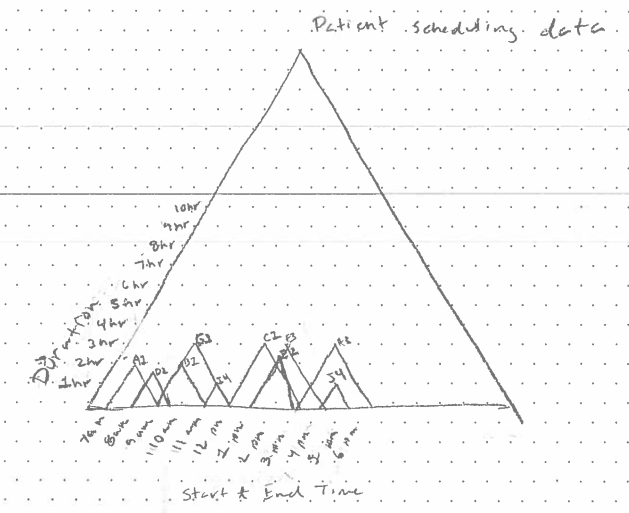 Patient scheduling data
10hr
9hr
8hr
7hr
6hr
5hr
4hr
3hr
2hr
1hr
Duration
A1
D2
C2
E3
J4
J4
7am
8am
9am
10am
11am
12 pm
1 pm
2 pm
3 pm
4 pm
5 pm
6 pm
Start & End Time